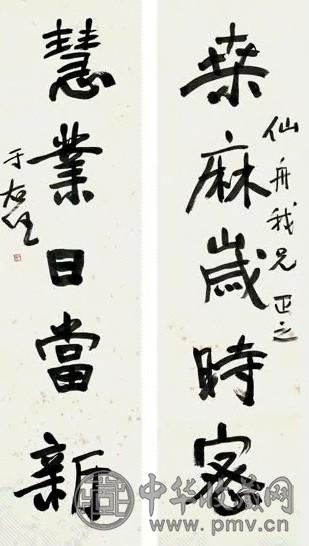 桒麻歲時密
仙舟我兄 正之
慧業日當新
于右任
中华收藏网
www.pmv.cn